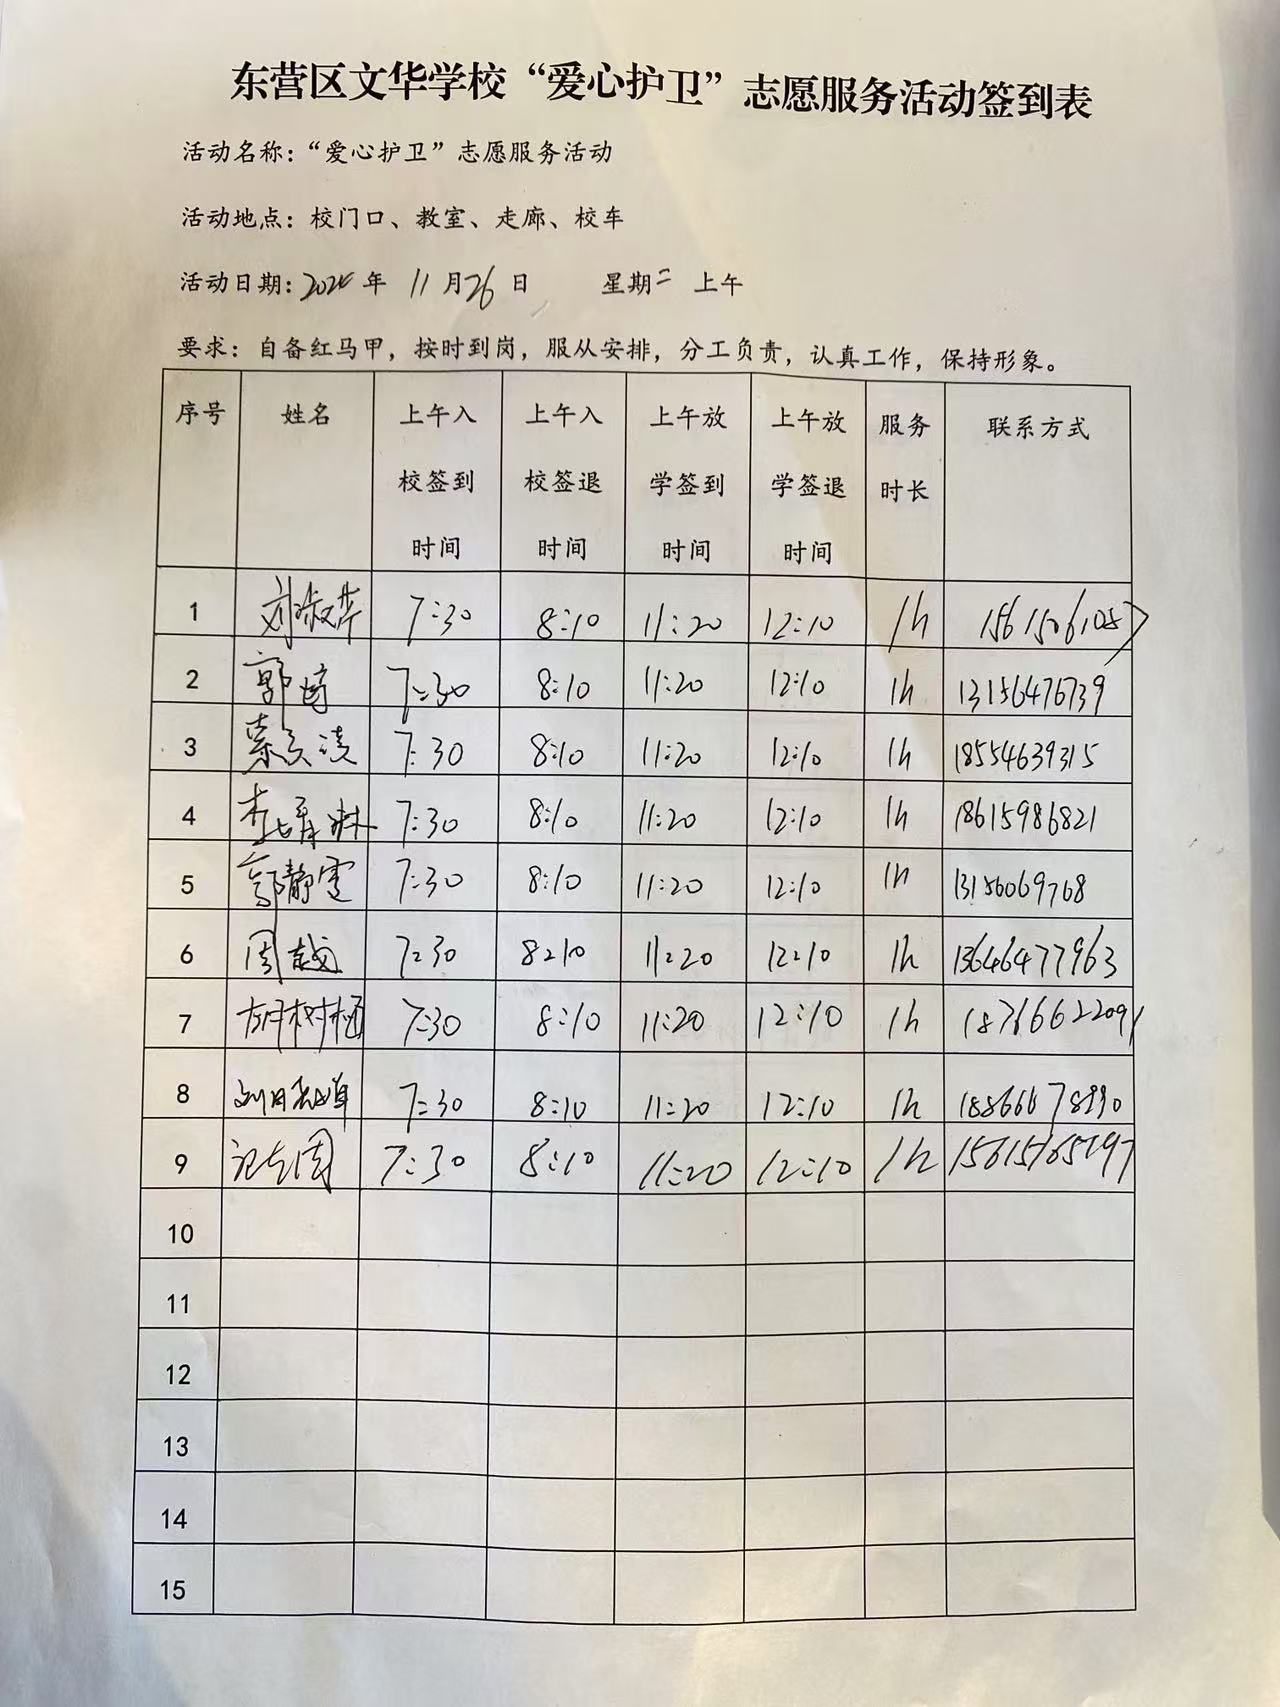 东营区文华学校“爱心护卫”志愿服务活动签到表
活动名称：“爱心护卫”志愿服务活动
活动地点：校门口、教室、走廊、校车
活动日期：2024年 11月26日 星期二 上午
要求：自备红马甲，按时到岗，服从安排，分工负责，认真工作，保持形象。
序号 姓名 上午入校签到时间 上午入校签退时间 上午放学签到时间 上午放学签退时间 服务时长 联系方式
1 刘淑华 7:30 8:10 11:20 12:10 1h
2 郭 7:30 8:10 11:20 12:10 1h 13156476739
3 7:30 8:10 11:20 12:10 1h 18554639315
4 7:30 8:10 11:20 12:10 1h 18615986821
5 郭静雯 7:30 8:10 11:20 12:10 1h 13156069768
6 周越 7:30 8:10 11:20 12:10 1h 13646477963
7 7:30 8:10 11:20 12:10 1h 18766622091
8 7:30 8:10 11:20 12:10 1h
9 7:30 8:10 11:20 12:10 1h
10
11
12
13
14
15